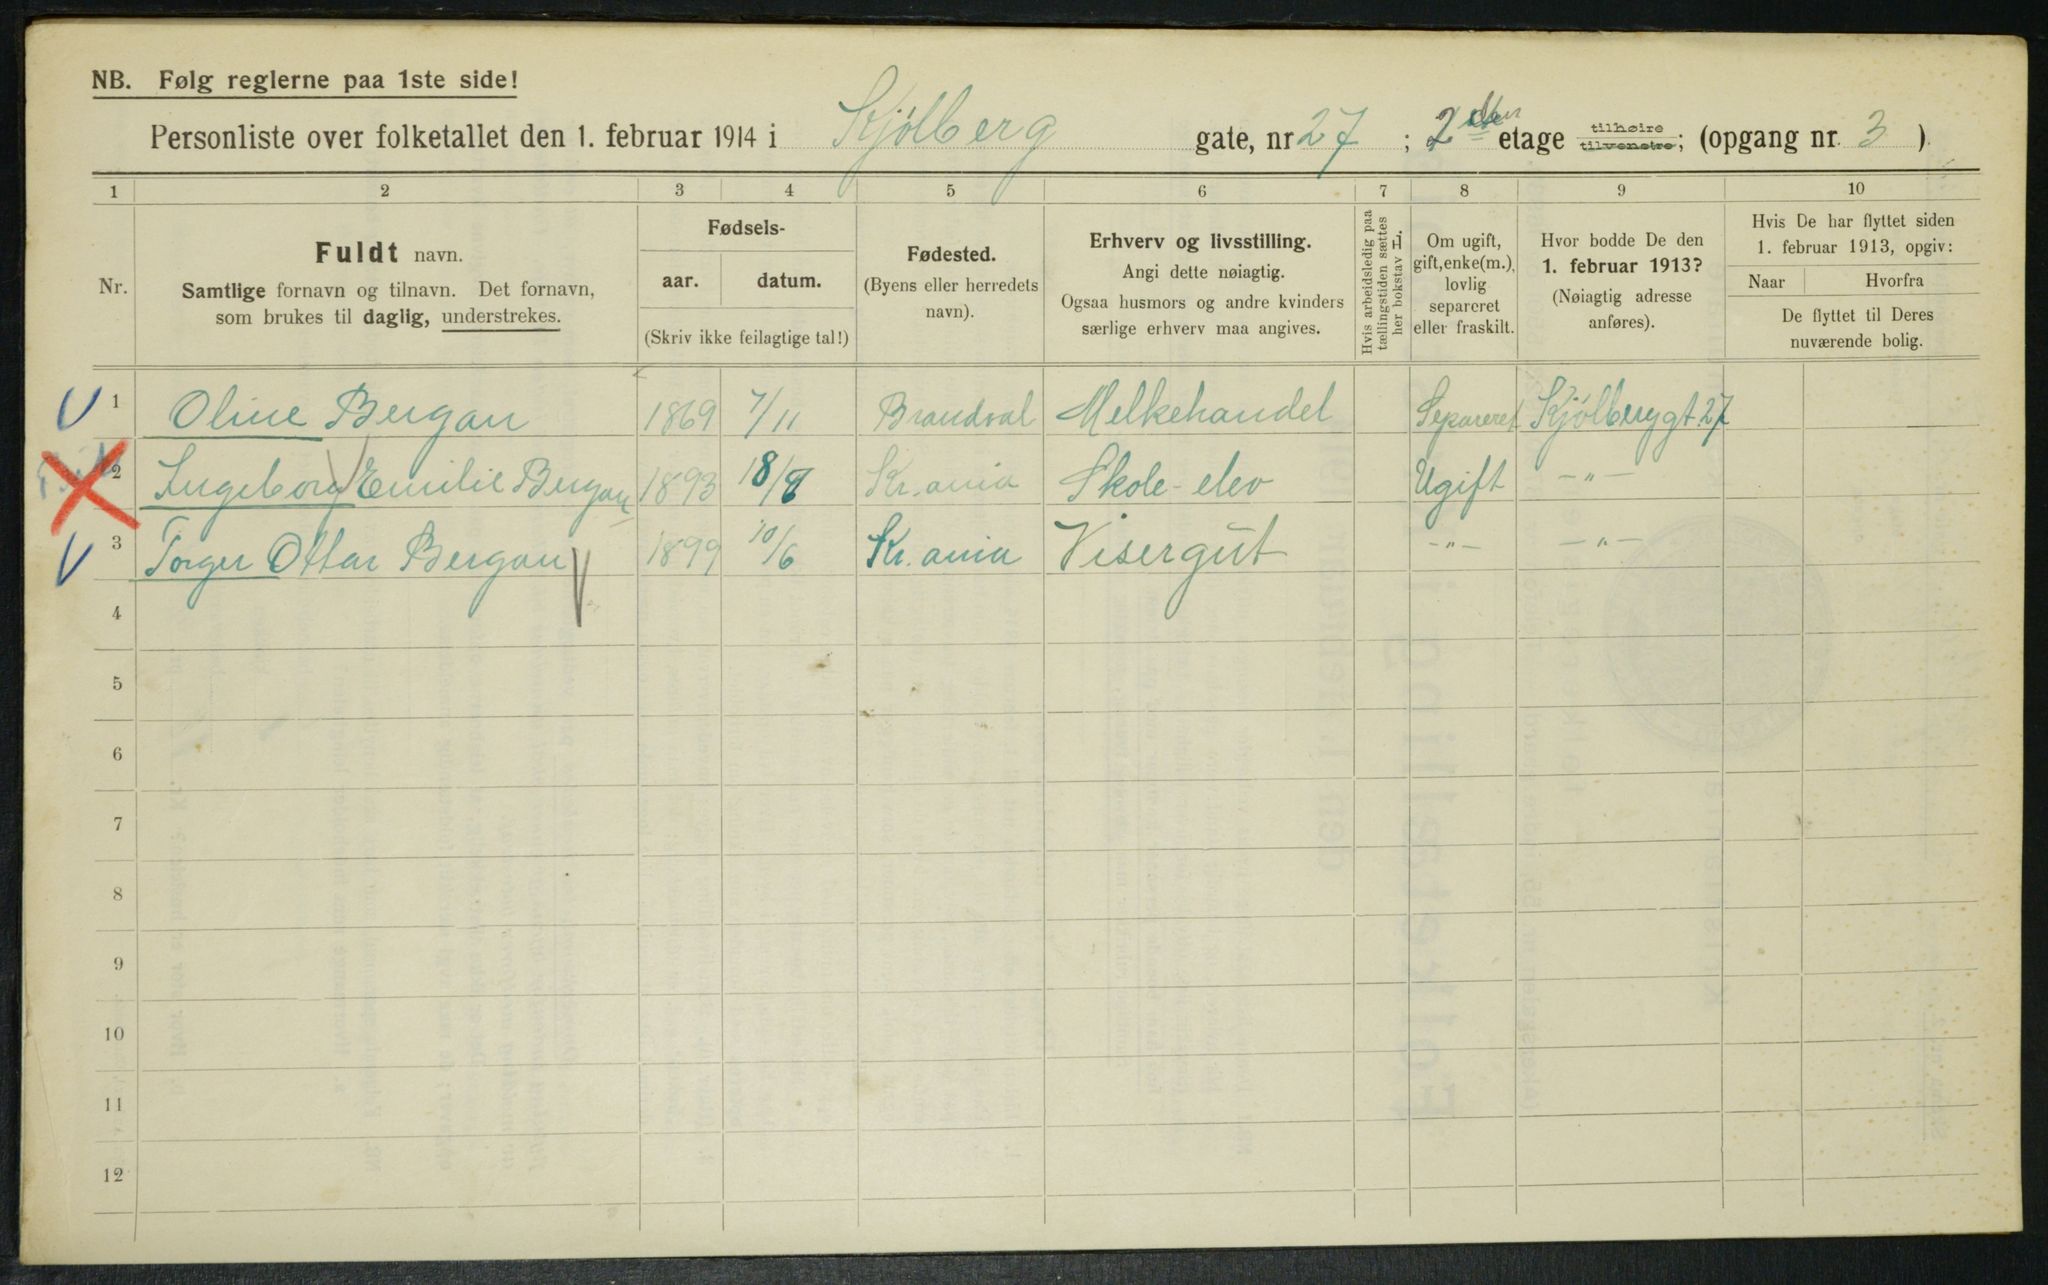 NB. Følg reglerne paa 1ste side!
Personliste over folketallet den 1. februar 1914 i Kjölberg gate, nr 27; 2 etage tilhøire tilvenstre; (opgang nr. 3)
1 2 3 4 5 6 7 8 9 10
Nr.
Fuldt navn.
Samtlige fornavn og tilnavn. Det fornavn,
som brukes til daglig, understrekes.
Fødsels-
aar. datum.
(Skriv ikke feilagtige tal!)
Fødested.
(Byens eller herredets
navn).
Erhverv og livsstilling.
Angi dette nøiagtig.
Ogsaa husmors og andre kvinders
særlige erhverv maa angives.
Hvis arbeidsledig paa
tællingstiden sættes
her bokstav L.
Om ugift,
gift, enke(m.),
lovlig
separeret
eller fraskilt.
Hvor bodde De den
1. februar 1913?
(Nøiagtig adresse
anføres).
Hvis De har flyttet siden
1. februar 1913, opgiv:
Naar Hvorfra
De flyttet til Deres
nuværende bolig.
1 Oline Bergan 1869 7/11 Brandval Melkehandel Separeret Kjölberggt. 27
2 Ingeborg Emilie Bergan 1893 18/8 Kr.ania Skole-elev Ugift -„-
3 Torger Ottar Bergan 1899 10/6 Kr.ania Visergut -„- -„-
4
5
6
7
8
9
10
11
12